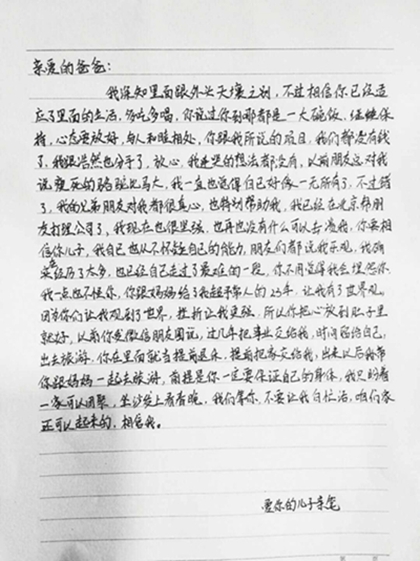 亲爱的爸爸：
我深知里面跟外头天壤之别，不过相信你已经适
应了里面的生活，多吃多喝，你说过你到哪都是一大碗饭，继续保
持，心态要放好，与人和睦相处，你跟我所说的项目，我们都没有钱
了，我跟浩然也分手了，放心，我连死的想法都没有，以前朋友总对我
说瘦死的骆驼比马大，我一直也觉得自己好像一无所有了，不过错
了，我的兄弟朋友对我都很真心，也特别帮助我，我已经在北京帮朋
友打理公司了，我现在也很坚强，也再也没有什么可以击溃我，你要相
信你儿子，我自己也从不怀疑自己的能力，朋友们都说我乐观，我确
实经历了太多，也已经自己走过了最难的一段，你不用觉得我会埋怨你
我一点也不怪你，你跟妈妈给了我超乎常人的23年，让我有了世界观，
因为你们让我观到了世界，挫折让我更强，所以你把心放到肚子里
就好，以前你发微信朋友圈说，过几年把事业交给我，时间留给自己，
出去旅游，你在里面就当提前退休，提前把家交给我，出来以后我带
你跟妈妈一起去旅游，前提是你一定要保证自己的身体，我只盼着
一家可以团聚，坐沙发上看春晚，我们等你，不要让我白忙活，咱们家
还可以起来的，相信我。
爱你的儿子亲笔